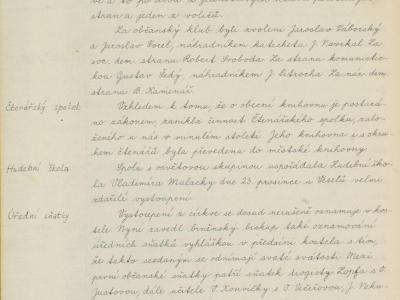 stran a jeden z voličů.
Za občanský klub byli zvoleni Jaroslav Táborský
a Jaroslav Vorel, náhradníkem katecheta J. Navrkal Za
soc. dem. stranu Robert Svoboda. Za stranu komunistic-
kou Gustav Šedý, náhradníkem J. Pitrocha Za nár. dem.
stranu B. Kamenář.
Čtenářský spolek
Vzhledem k tomu, že o obecní knihovnu je postará-
no zákonem, zanikla činnost Čtenářského spolku, zalo-
ženého u nás v minulém století. Jeho knihovna i s okru-
hem čtenářů byla převedena do městské knihovny.
Hudební škola
Spolu s osvětovou skupinou uspořádala Hudební ško-
la Vladimíra Malacky dne 23. prosince u Veselů velmi
zdařilé vystoupení.
Úřední sňatky
Vystoupení z církve se dosud nerušeně oznamuje v kos-
tele. Nyní zavedl brněnský biskup také oznamování
úředních sňatků vyhláškou v předsíni kostela s tím,
že takto sezdaným se odnímají svaté svátosti. Mezi
první občanské sňatky patří sňatek Zopfa s O.
Justovou, dále učitele V. Konvičky s O. J. Vaku-